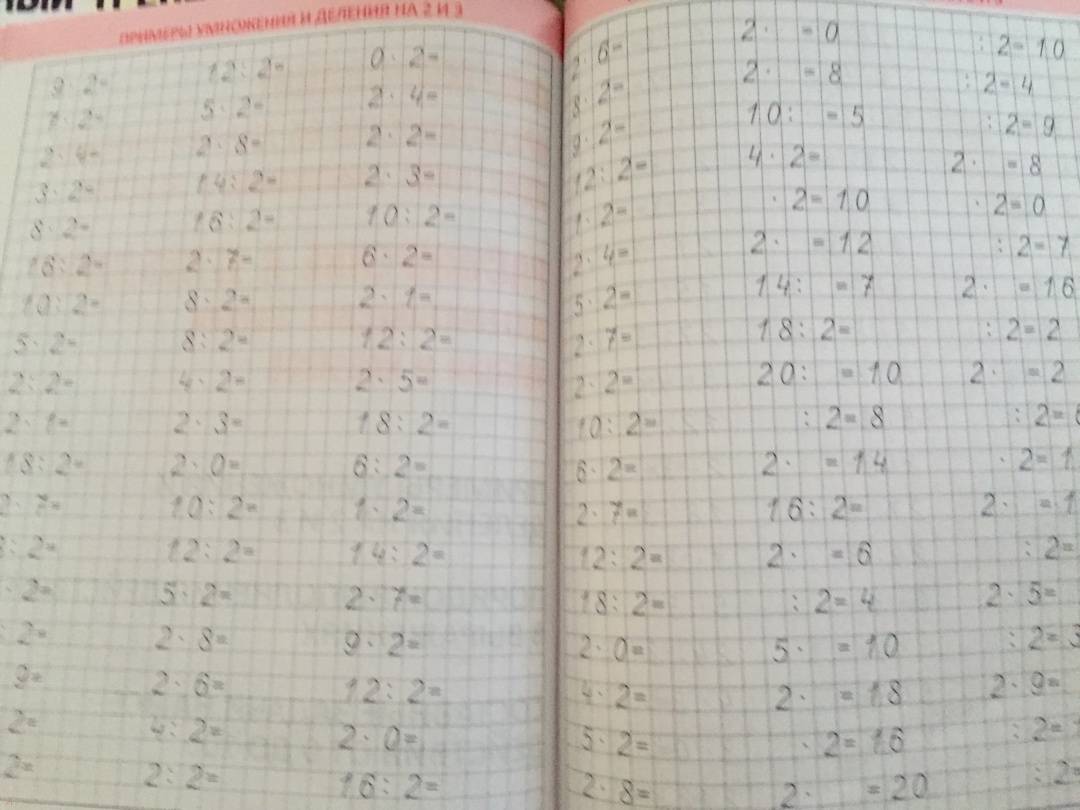 ПРИМЕРЫ УМНОЖЕНИЯ И ДЕЛЕНИЯ НА 2 И 3
9 · 2=
7 · 2=
2 · 4=
3 · 2=
8 · 2=
16 : 2=
10 : 2=
5 · 2=
2 : 2=
2 · 1=
18 : 2=
2 · 7=
: 2=
· 2=
: 2=
9=
2=
2=
12 : 2=
5 · 2=
2 · 8=
14 : 2=
16 : 2=
2 · 7=
8 · 2=
8 : 2=
4 · 2=
2 · 3=
2 · 0=
10 : 2=
12 : 2=
5 · 2=
2 · 8=
2 · 6=
4 : 2=
2 : 2=
0 · 2=
2 · 4=
2 · 2=
2 · 3=
10 : 2=
6 · 2=
2 · 1=
12 : 2=
2 · 5=
18 : 2=
6 : 2=
1 · 2=
14 : 2=
2 · 7=
9 · 2=
12 : 2=
2 · 0=
16 : 2=
2 · 6=
8 · 2=
9 · 2=
12 : 2=
1 · 2=
2 · 4=
5 · 2=
2 · 7=
2 · 2=
10 : 2=
6 · 2=
2 · 7=
12 : 2=
18 : 2=
2 · 0=
4 · 2=
5 · 2=
2 · 8=
2 · = 0
2 · = 8
10 : = 5
4 · 2=
· 2= 10
2 · = 12
14 : = 7
18 : 2=
20 : = 10
: 2= 8
2 · = 14
16 : 2=
2 · = 6
: 2= 4
5 · = 10
2 · = 18
· 2= 16
2 · = 20
: 2= 10
: 2= 4
: 2= 9
2 · = 8
· 2= 0
: 2= 7
2 · = 16
: 2= 2
2 · = 2
: 2=
· 2= 1
2 · = 1
: 2=
2 · 5=
: 2= 3
2 · 9=
: 2=
: 2=